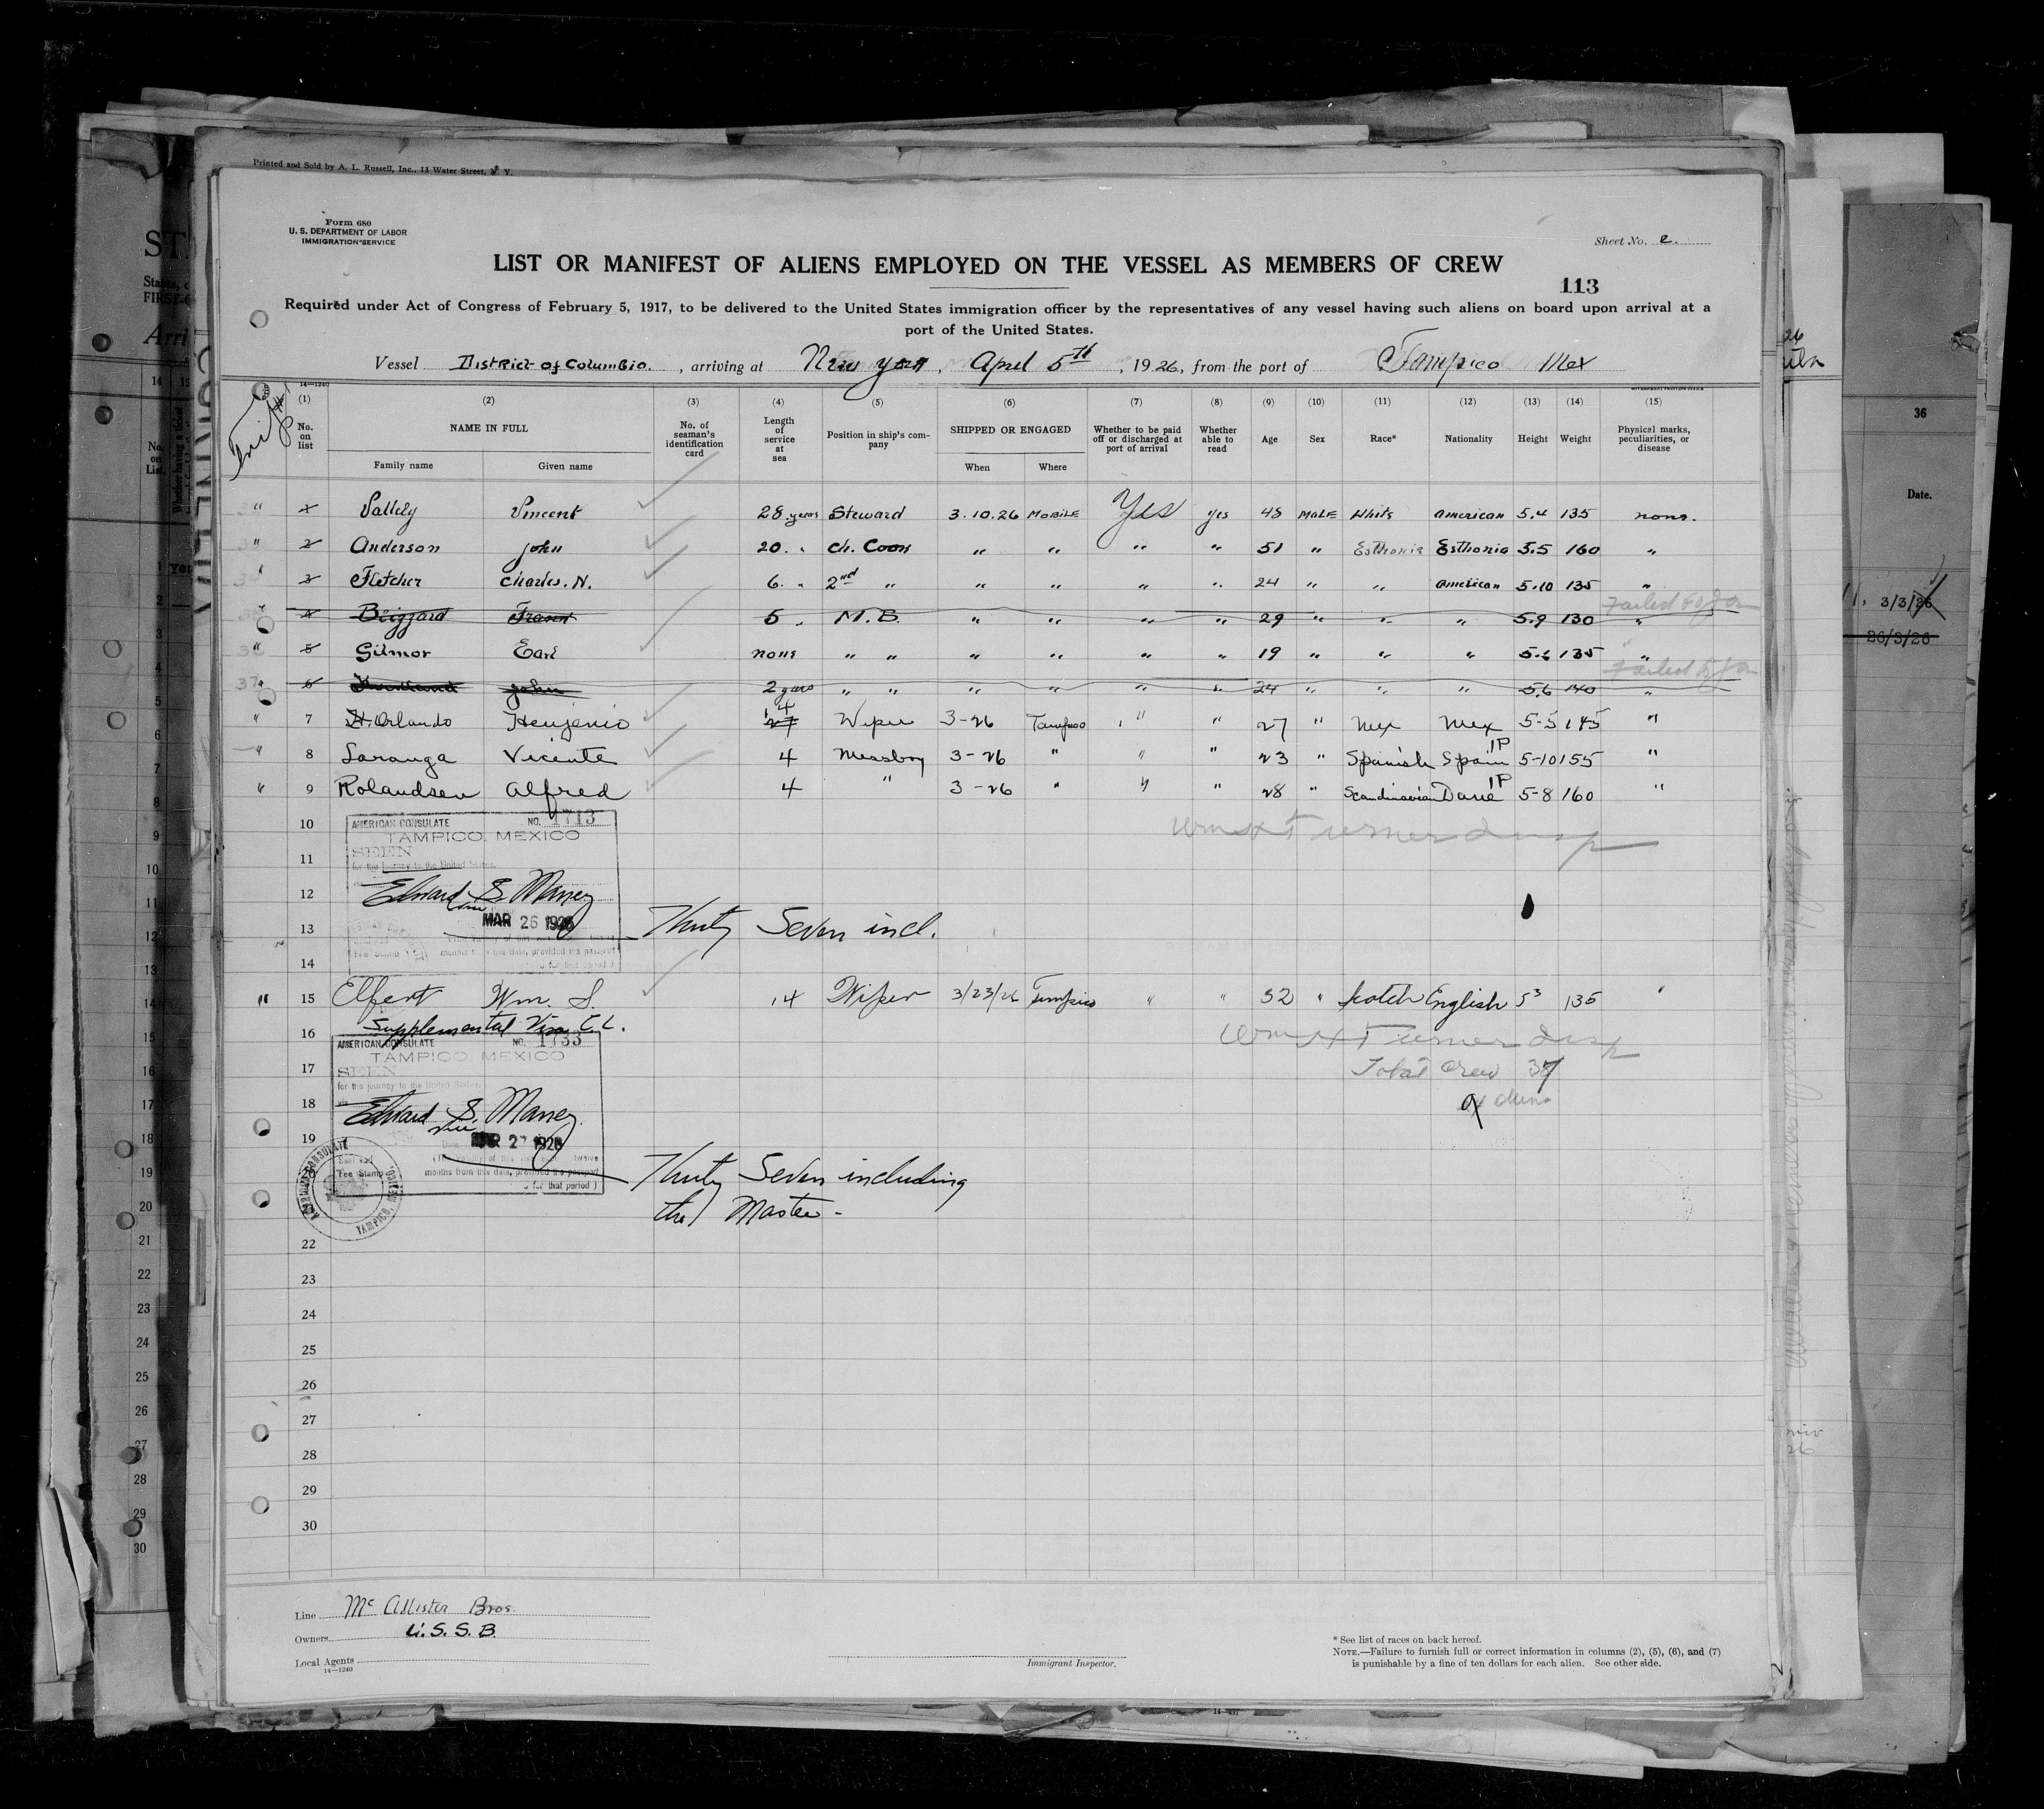 Printed and Sold by A. L. Russell, Inc., 13 Water Street, N. Y.
Form 680
U. S. DEPARTMENT OF LABOR
IMMIGRATION SERVICE
Sheet No. 2
LIST OR MANIFEST OF ALIENS EMPLOYED ON THE VESSEL AS MEMBERS OF CREW
113
Required under Act of Congress of February 5, 1917, to be delivered to the United States immigration officer by the representatives of any vessel having such aliens on board upon arrival at a
port of the United States.
Vessel District of Columbia, arriving at New York, April 5th, 1926, from the port of Tampico Mex
14-1240
GOVERNMENT PRINTING OFFICE
(1) (2) (3) (4) (5) (6) (7) (8) (9) (10) (11) (12) (13) (14) (15)
No. on list NAME IN FULL No. of seaman's identification card Length of service at sea Position in ship's company SHIPPED OR ENGAGED Whether to be paid off or discharged at port of arrival Whether able to read Age Sex Race* Nationality Height Weight Physical marks, peculiarities, or disease
Family name Given name When Where
" 1 Vallely Vincent 28 years Steward 3.10.26 MOBILE Yes yes 48 MALE White American 5.4 135 none.
" 2 Anderson John 20 " Ch. Cook " " " " 51 " Esthonia Esthonia 5.5 160 "
" 3 Fletcher Charles. N. 6 " 2nd " " " " " 24 " " American 5.10 135 "
Failed to join
" 4 Blizzard Frank 5 " M.B. " " " " 29 " " " 5.9 130 "
" 5 Gilmor Earl none " " " " " " 19 " " " 5.6 135 "
Failed to join
37 " 6 John 2 years " " " " " " 24 " " " 5.6 140 "
" 7 H. Orlando Heujenio 4 Wiper 3-26 Tampico " " 27 " Mex Mex 5-5 145 "
" 8 Laranga Vicente 4 Messboy 3-26 " " " 23 " Spanish Spain IP 5-10 155 "
" 9 Rolandsen Alfred 4 " 3-26 " " " 28 " Scandinavian Dane IP 5-8 160 "
10
AMERICAN CONSULATE NO. 1713
TAMPICO, MEXICO
SEEN
for the journey to the United States.
11
12
Edward S. Maney
MAR 26 1926
13 Thirty Seven incl.
14
" 15 Elfert Wm. S. 14 Wiper 3/23/26 Tampico " " 52 " Scotch English 5 3 135 "
16 Supplemental Visa C.L.
AMERICAN CONSULATE NO. 1733
TAMPICO, MEXICO
SEEN
for the journey to the United States.
17 Total Crew 37
18
Edward S. Maney
19
MAR 27 1926
(The validity of this visa twelve
months from this date, provided the passport
for that period)
Fee Stamp
AMERICAN CONSULATE
TAMPICO,
20 Thirty Seven including
the Master -
22
23
24
25
26
27
28
29
30
Line McAllister Bros.
Owners U.S.S.B.
Local Agents
14-1240
Immigrant Inspector.
* See list of races on back hereof.
NOTE.—Failure to furnish full or correct information in columns (2), (5), (6), and (7)
is punishable by a fine of ten dollars for each alien. See other side.
36
Date.
3/3/26
26/3/26